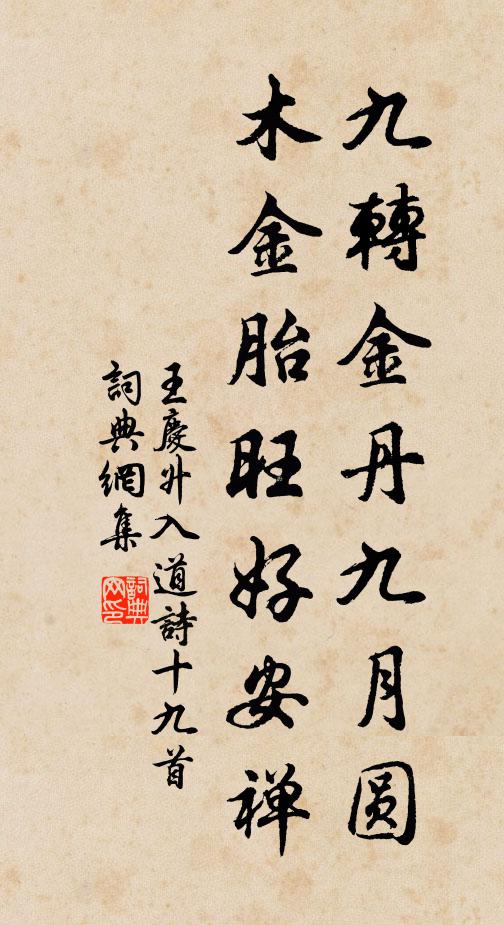 九轉金丹九月圓
木金胎旺好安禅
王慶升入道詩十九首
詞典網集
詞典網印